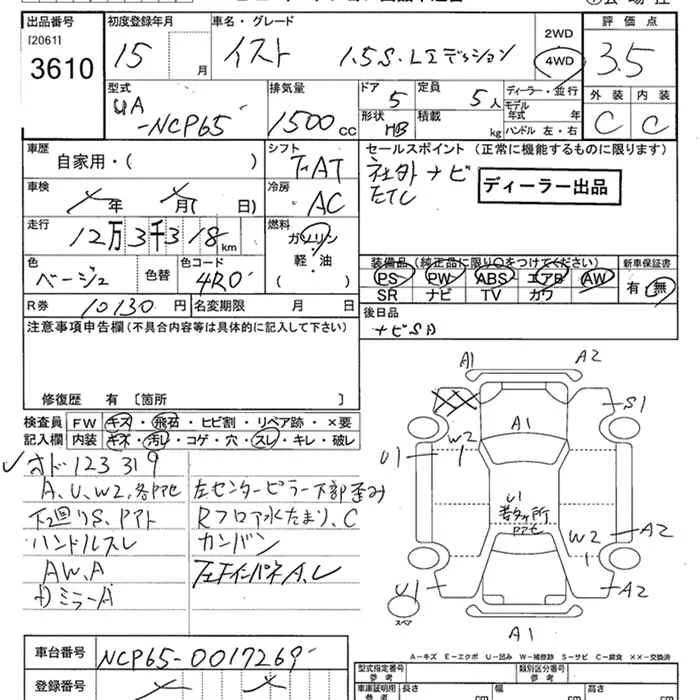 出品番号
[2061]
3610
初度登録年月
15
月
車名・グレード
イスト 1.5 S・Lエディション
2WD
4WD
評価点
3.5
外装 内装
C C
型式
UA
-NCP65
排気量
1500 cc
ドア
5
定員
5人
形状
HB
積載
kg
ディーラー・並行
モデル
年式 年
ハンドル 左・右
車歴
自家用・( )
シフト
FAT
セールスポイント (正常に機能するものに限ります)
社外ナビ
ETC
ディーラー出品
車検
年 月( 日)
冷房
AC
走行
12万3千318km
燃料
ガソリン
軽・油
( )
色
ベージュ
色替
色コード
4R0
装備品(純正品に限り○をつけてください)
PS PW ABS エアB AW
SR ナビ TV カワ
新車保証書
有・無
R券 10130円
名変期限 月 日
後日品
ナビSD
注意事項申告欄(不具合内容等は具体的に記入して下さい)
修復歴 有 〔箇所 〕
検査員
記入欄
FW キズ・飛石・ヒビ割・リペア跡・×要
内装 キズ・汚レ・コゲ・穴・スレ・キレ・破レ
オド 123319
A、U、W2、各アセ
下2回りS、Pアト
ハンドルスレ
AW、A
カミラーA
左センターピラー下部歪み
Rフロア水たまり、C
カンバン
A1
A2
S1
W2
A1
U1
U1
アセ
A2
W2
U1
A2
A1
スペア
A-キズ E-エクボ U-凹み W-補修跡 S-サビ C-腐食 ××-交換済
車台番号
NCP65-0017269
登録番号
型式指定番号
参考
類別区分番号
参考
車庫証明用
参考
長さ cm
幅 cm
高さ cm